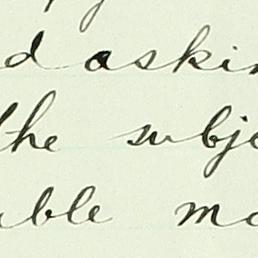 d askin
the subje
ble mo